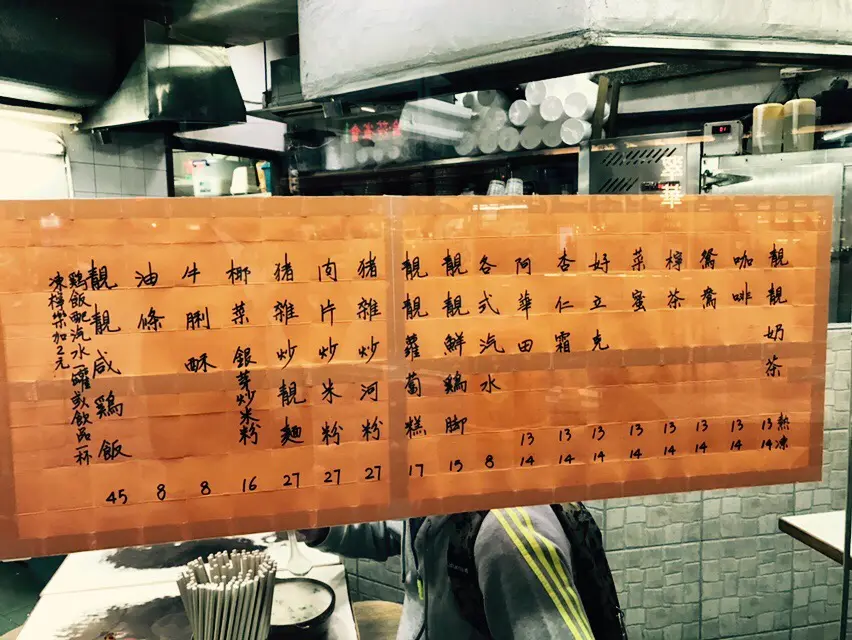 靚靚奶茶 熱13 凍14
咖啡 13 14
鴛鴦 13 14
檸茶 13 14
菜蜜 13 14
好立克 13 14
杏仁霜 13 14
阿華田 13 14
各式汽水 8
靚靚鮮鷄脚 15
靚靚蘿蔔糕 17
猪雜炒河粉 27
肉片炒米粉 27
猪雜炒靚麵 27
椰菜銀芽炒米粉 16
牛脷酥 8
油條 8
靚靚咸鷄飯 45
鷄飯配汽水一罐或飲品一杯
凍檸樂加2元
翠華